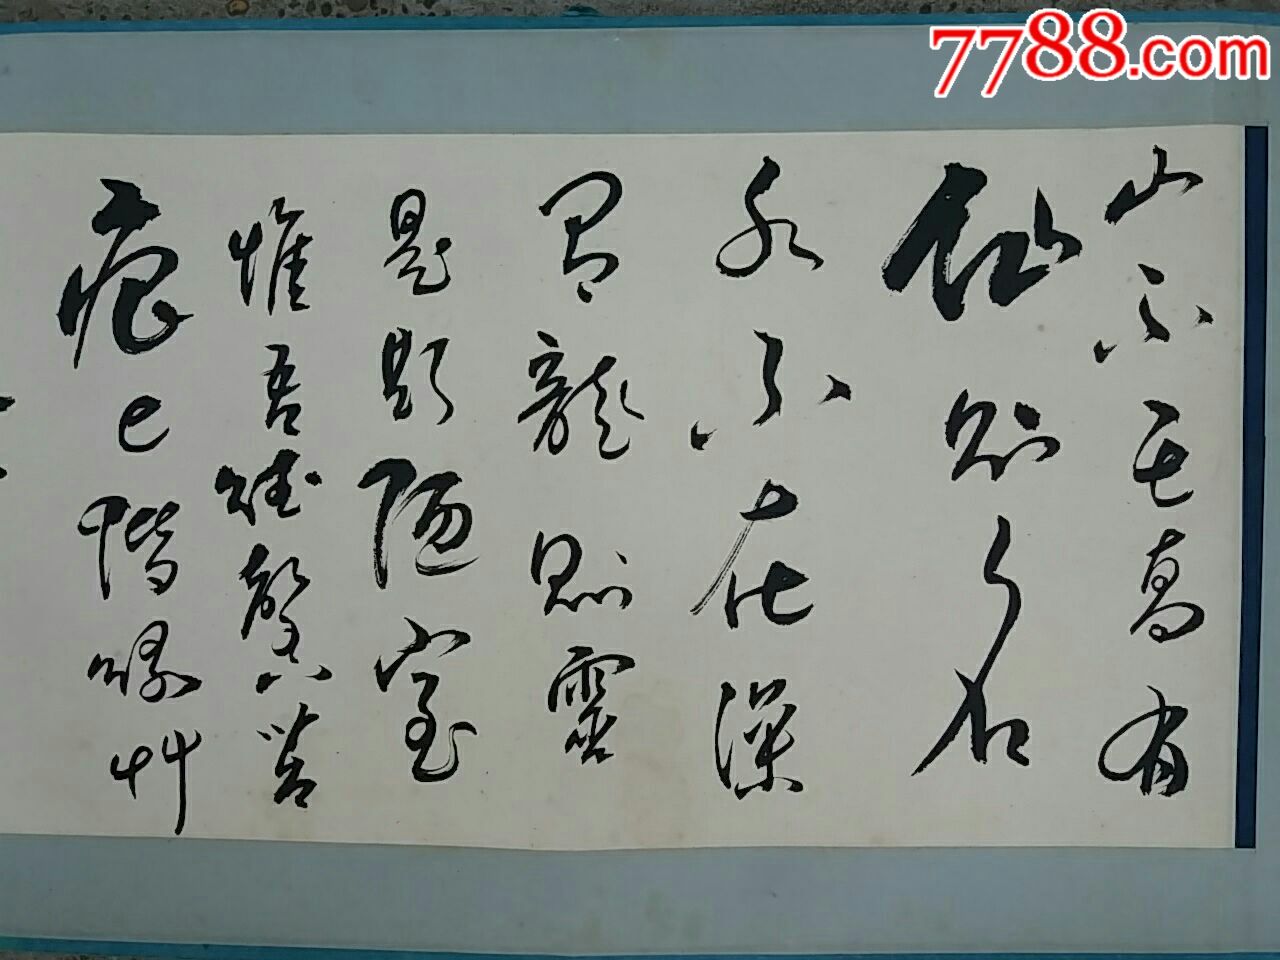 山不在高有
仙則名
水不在深
有龍則靈
是斯陋室
惟吾德馨苔
痕上階綠艸
7788.com